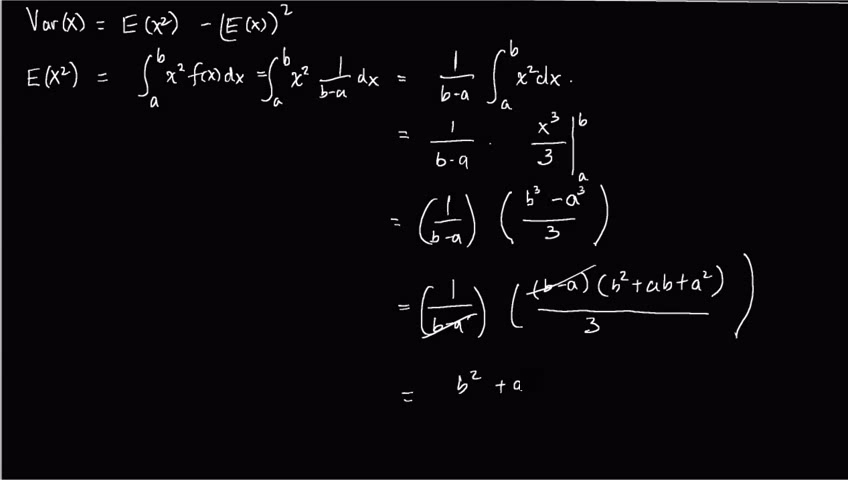 Var(x) = E(x²) - (E(x))²
E(x²) = ∫_a^b x² f(x) dx = ∫_a^b x² 1/(b-a) dx = 1/(b-a) ∫_a^b x² dx.
= 1/(b-a) · x³/3 |_a^b
= (1/(b-a)) ((b³ - a³)/3)
= (1/(b-a)) ((b-a)(b² + ab + a²)/3)
= b² + a